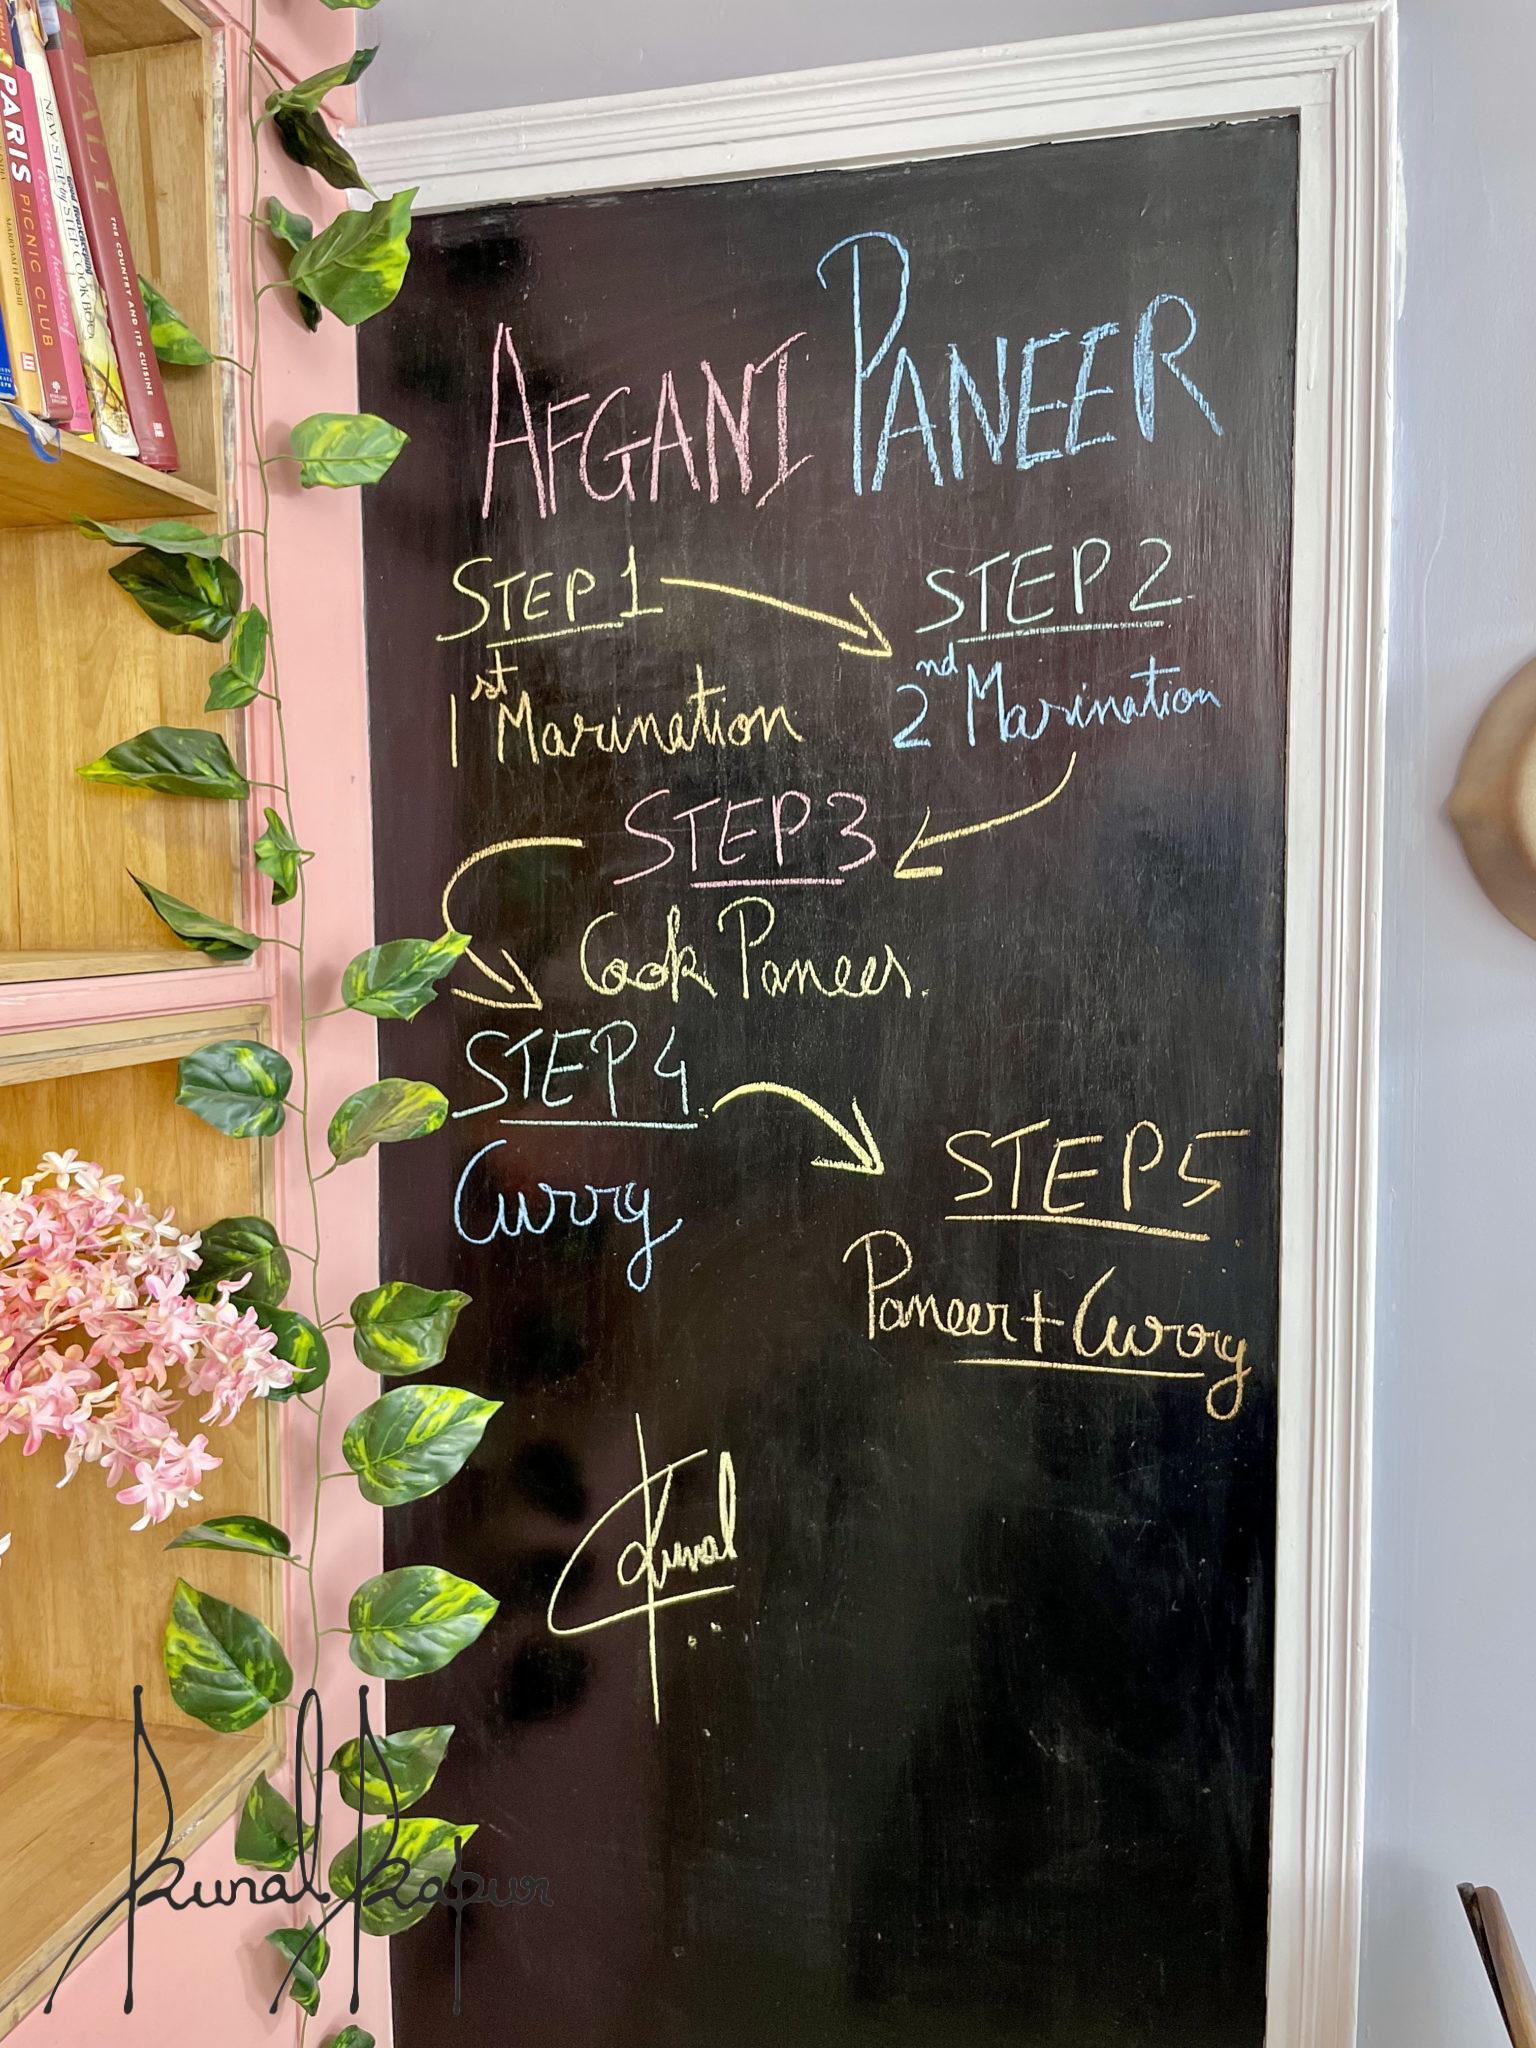 AFGANI PANEER
STEP 1
1st Marination
STEP 2
2nd Marination
STEP 3
Cook Paneer.
STEP 4.
Curry
STEP 5
Paneer + Curry
Kunal
Kunal Kapur
PARIS PICNIC CLUB
love in a headscarf
NEW STEP by STEP COOK BOOK
Good Housekeeping
ITALY THE COUNTRY AND ITS CUISINE